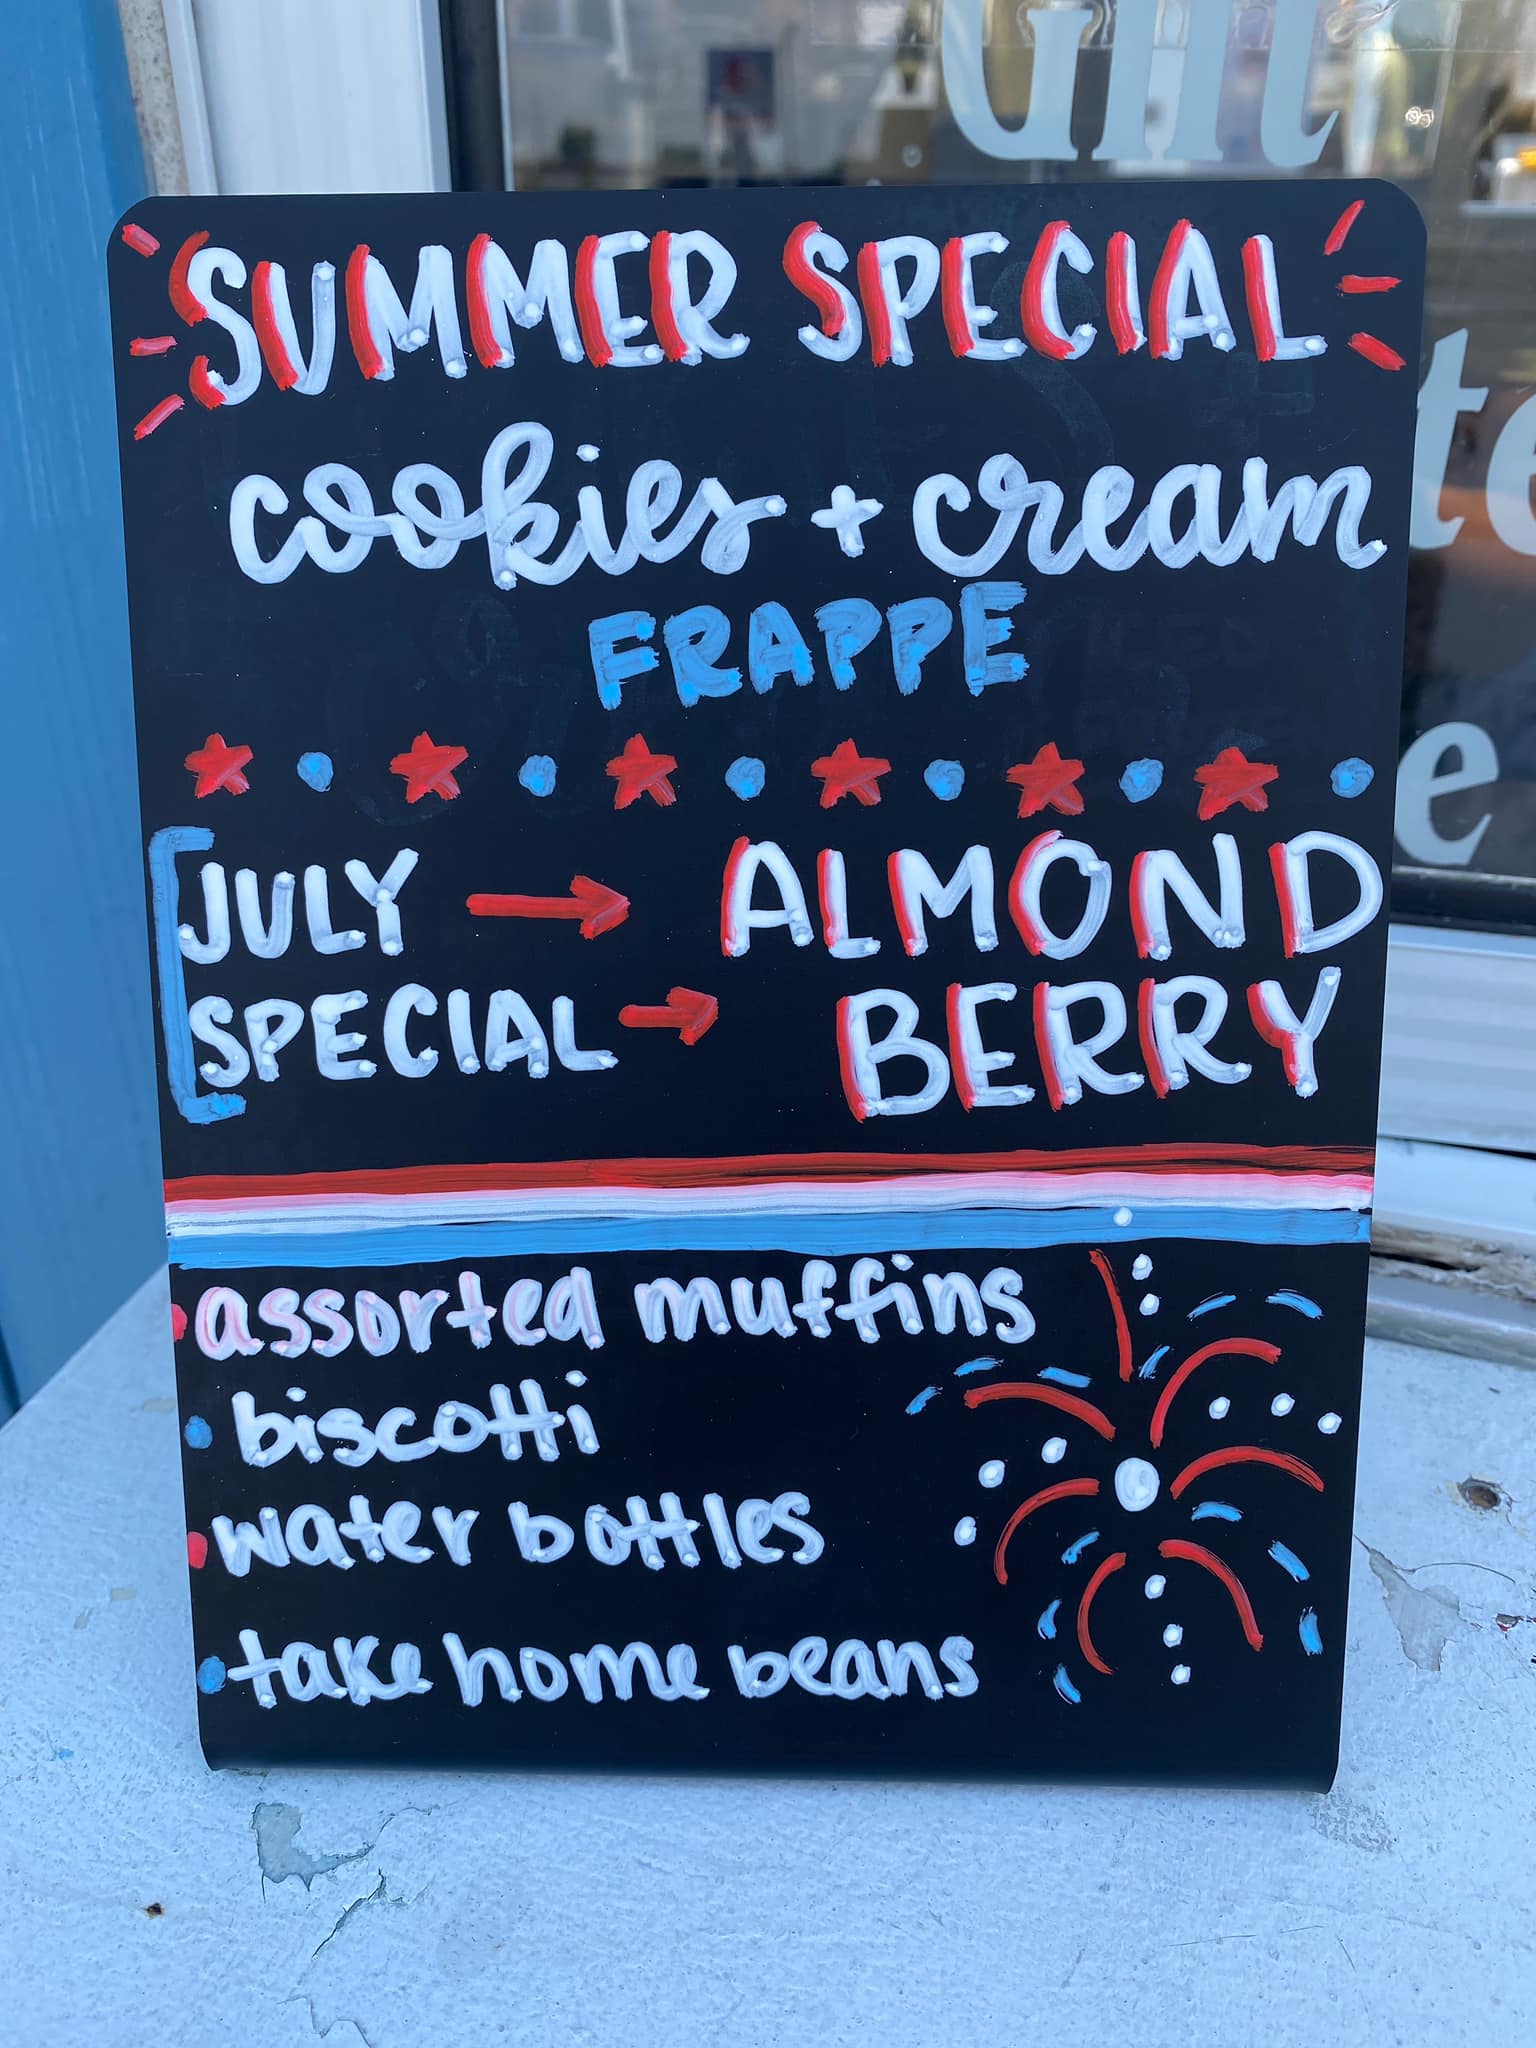 Gift
SUMMER SPECIAL
cookies + cream
FRAPPE
JULY → ALMOND
SPECIAL → BERRY
• assorted muffins
• biscotti
• water bottles
• take home beans